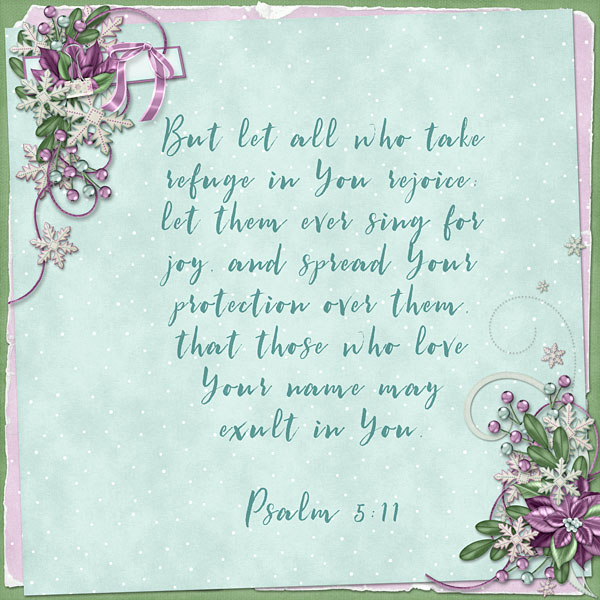 But let all who take
refuge in You rejoice;
let them ever sing for
joy, and spread Your
protection over them,
that those who love
Your name may
exult in You.
Psalm 5:11